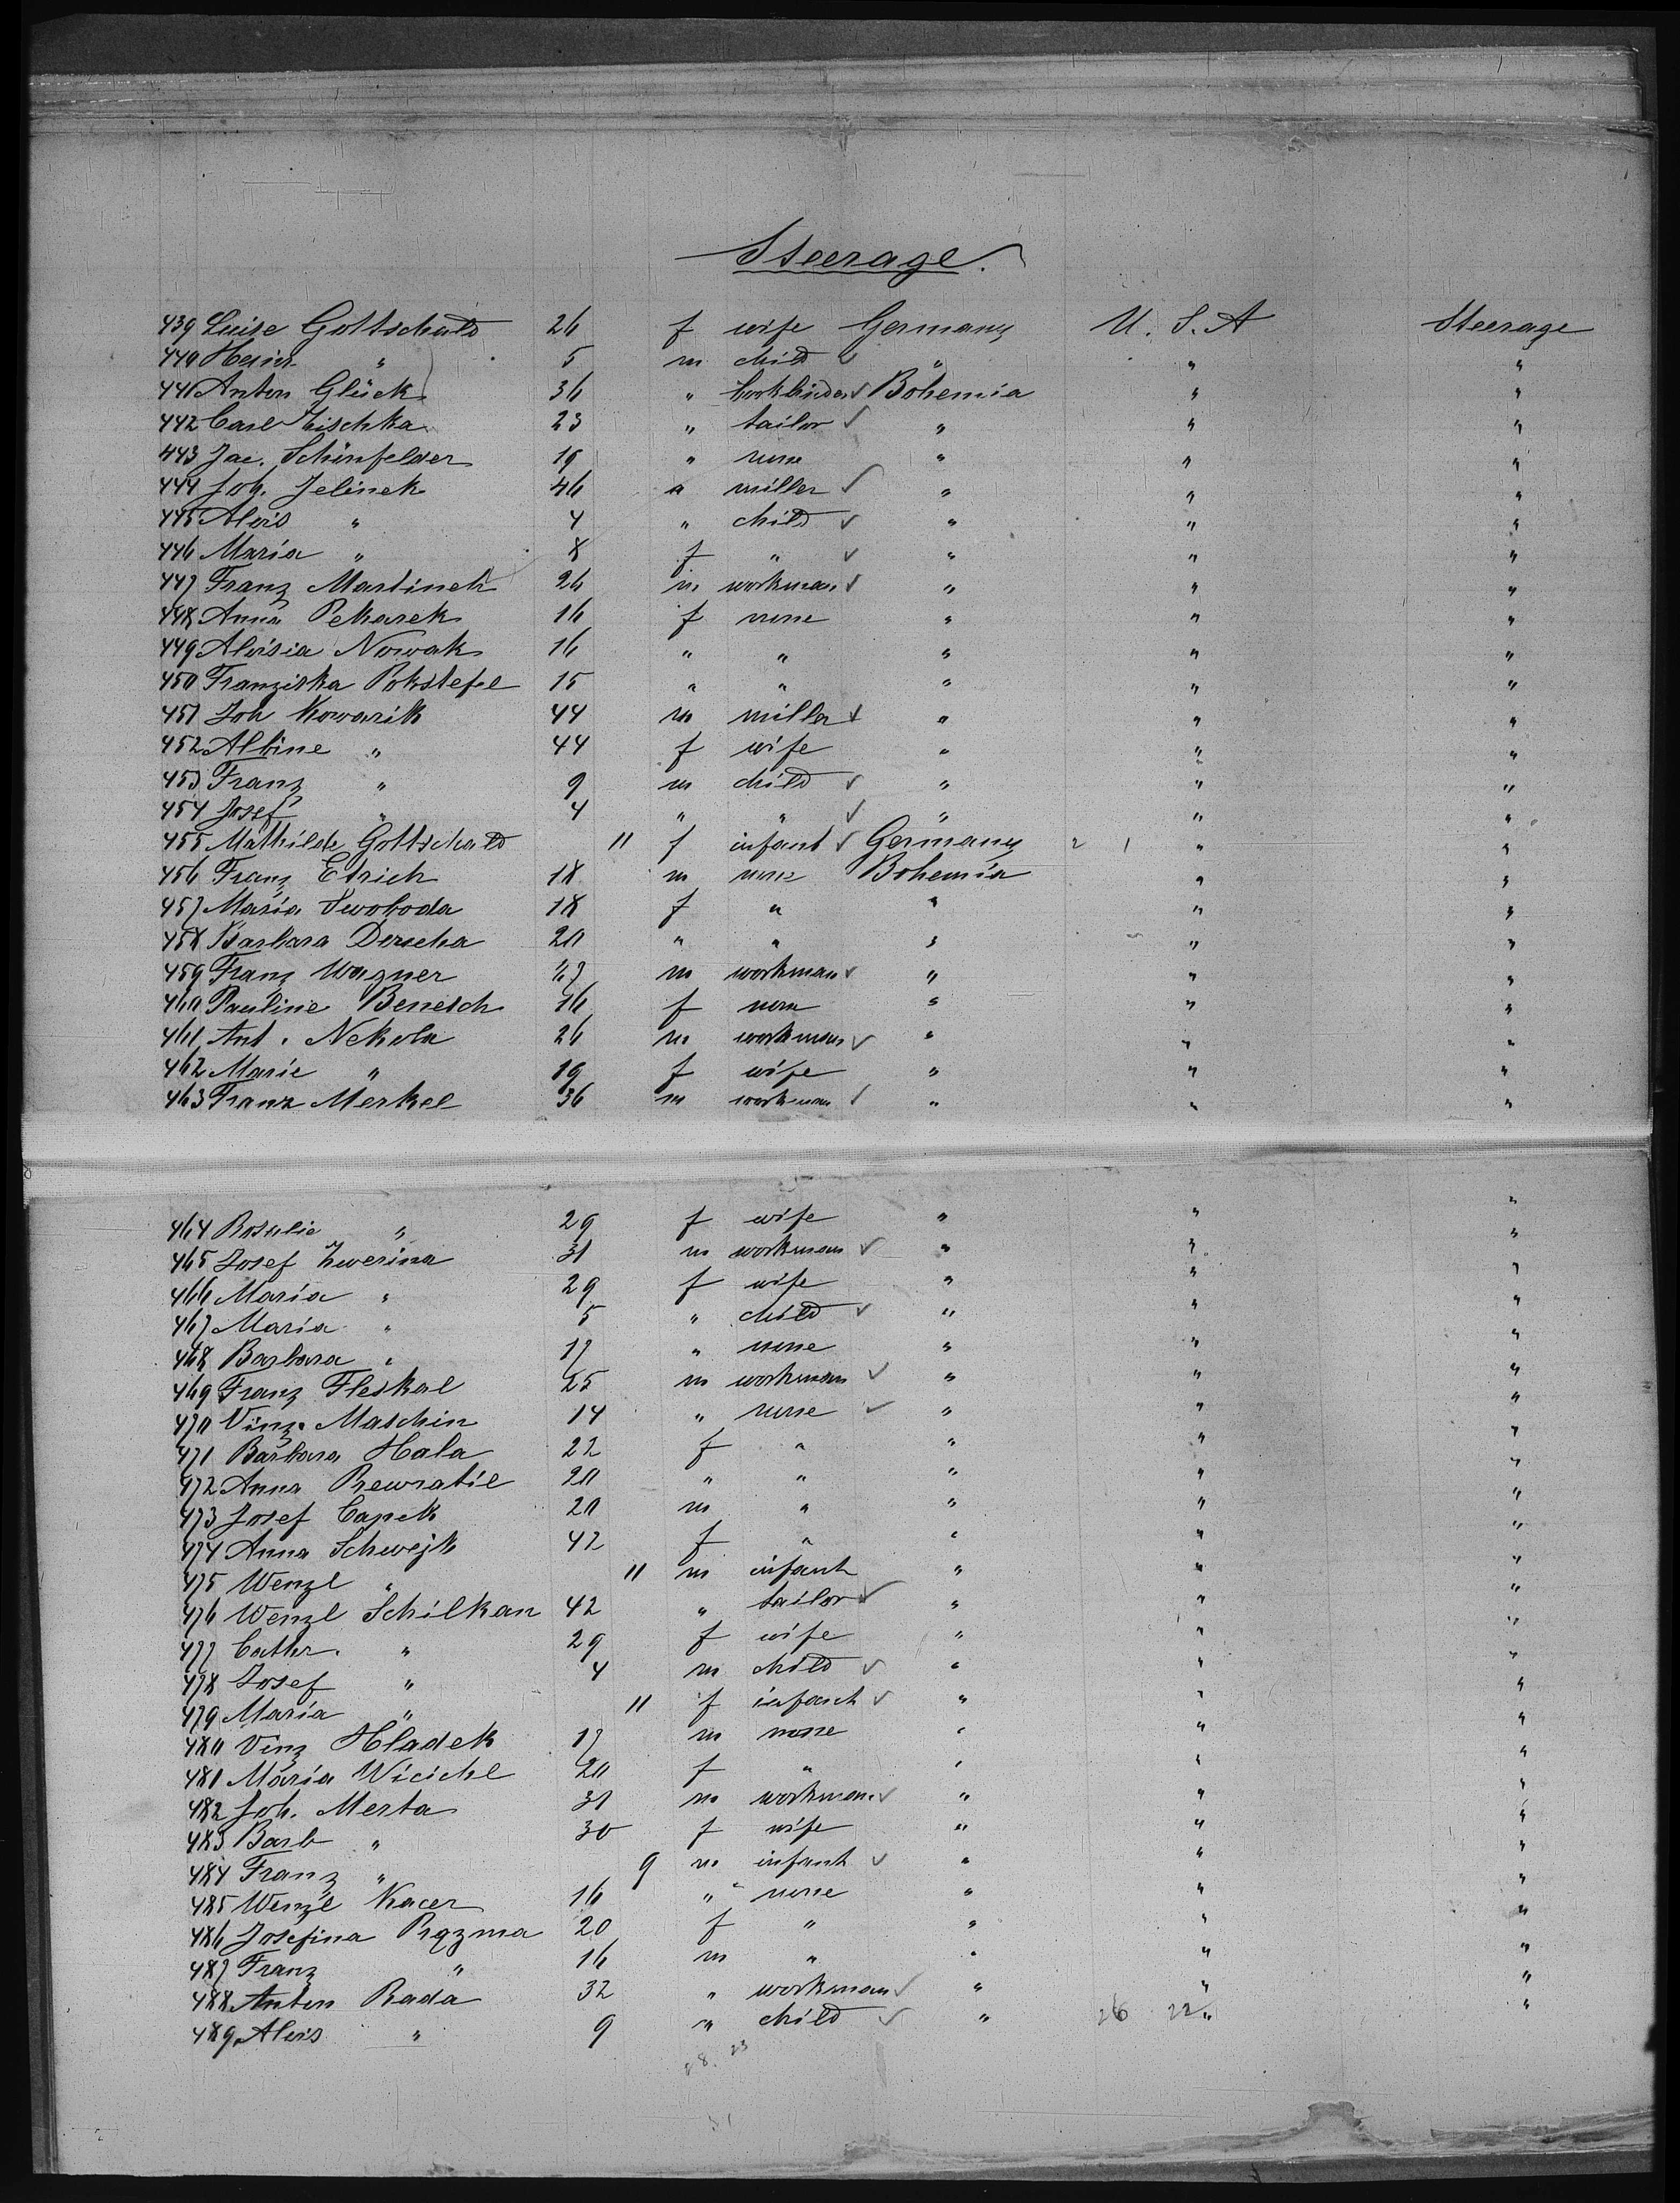 Steerage.
439 Luise Gottschald 26 f wife Germany U. S. A Steerage
440 Heinr. " 5 m child " " "
441 Anton Glück 36 " bookbinder Bohemia " "
442 Carl Zischka 23 " tailor " " "
443 Jac. Schönfelder 19 " none " " "
444 Joh. Jelinek 46 " miller " " "
445 Alois " 4 " child " " "
446 Maria " 8 f " " " "
447 Franz Martinek 26 m workman " " "
448 Anna Pekarek 16 f none " " "
449 Aloisia Nowak 16 " " " " "
450 Franziska Pokstefel 15 " " " " "
451 Joh Kowarik 44 m miller " " "
452 Albine " 44 f wife " " "
453 Franz " 9 m child " " "
454 Josef " 4 " " " " "
455 Mathilde Gottschald 11 f infant Germany 2 1 " "
456 Franz Etrich 18 m none Bohemia " "
457 Maria Swoboda 18 f " " " "
458 Barbara Derscha 20 " " " " "
459 Franz Wagner m workman " " "
460 Pauline Benesch 16 f none " " "
461 Ant. Nekola 26 m workman " " "
462 Marie " 19 f wife " " "
463 Franz Merkel 36 m workman " " "
464 Rosalie " 29 f wife " " "
465 Josef Zwerina 31 m workman " " "
466 Maria " 29 f wife " " "
467 Maria " 5 " child " " "
468 Barbara " 17 " none " " "
469 Franz Fleskal 25 m workman " " "
470 Vinz. Maschin 14 " none " " "
471 Barbara Hala 22 f " " " "
472 Anna Rewratil 20 " " " " "
473 Josef Capek 20 m " " " "
474 Anna Schwejk 42 f " " " "
475 Wenzl " 11 m infant " " "
476 Wenzl Schilkan 42 " tailor " " "
477 Cathr. " 29 f wife " " "
478 Josef " 4 m child " " "
479 Maria " 11 f infant " " "
480 Vinz Hladek 17 m none " " "
481 Maria Wicichl 20 f " " " "
482 Joh. Merta 31 m workman " " "
483 Barb " 30 f wife " " "
484 Franz " 9 m infant " " "
485 Wenzl Kacer 16 " none " " "
486 Josefina Prazma 20 f " " " "
487 Franz " 16 m " " " "
488 Anton Rada 32 " workman " " "
489 Alois " 9 " child " 26 22 " "
28. 23